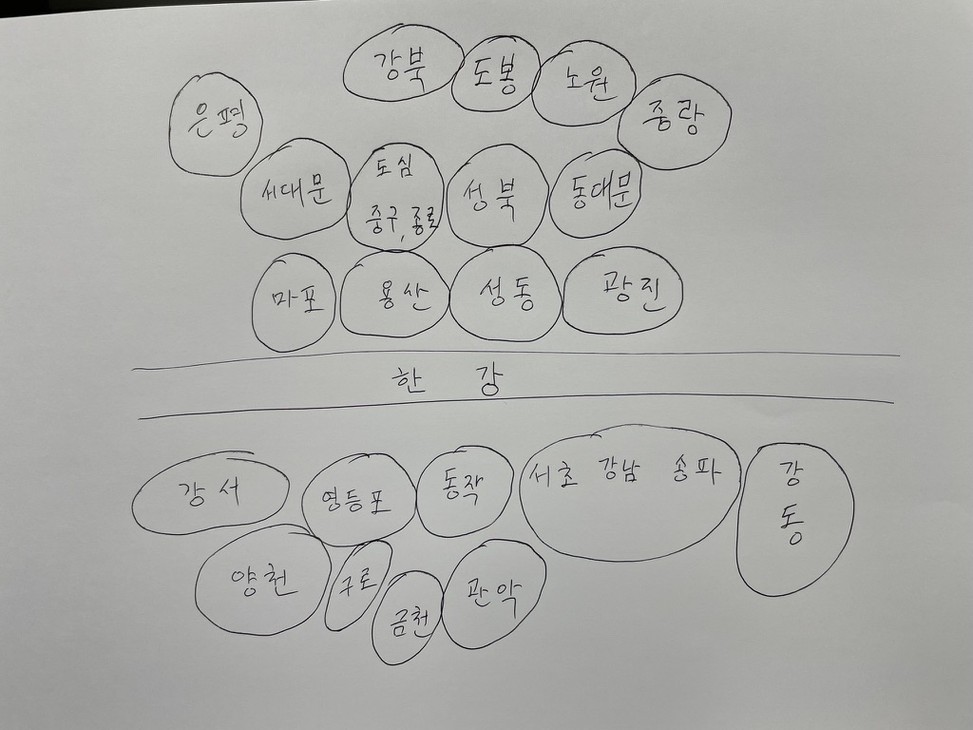 강북
도봉
노원
은평
중랑
서대문
도심
중구, 종로
성북
동대문
마포
용산
성동
광진
한 강
강 서
영등포
동작
서초 강남 송파
강
동
양천
구로
금천
관악